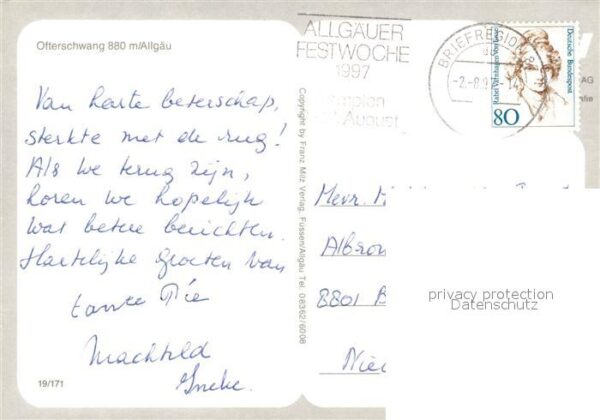 Ofterschwang 880 m/Allgäu
Van harte beterschap,
sterkte met de rug!
Als we terug zijn,
horen we hopelijk
wat betere berichten.
Hartelijke groeten van
tante Rie
Machteld
Ineke.
19/171
Copyright by Franz Milz Verlag, Füssen/Allgäu Tel. 08362/6008
ALLGÄUER
FESTWOCHE
1997
August
BRIEFREGION
Deutsche Bundespost
80
AG
Mevr.
8801
privacy protection
Datenschutz